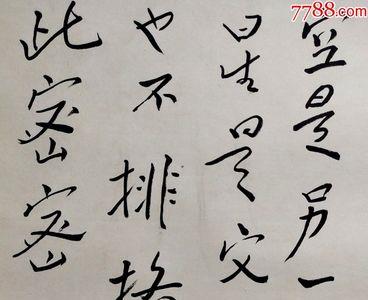 7788.com
空是另一
星是交
也不排格
此密密